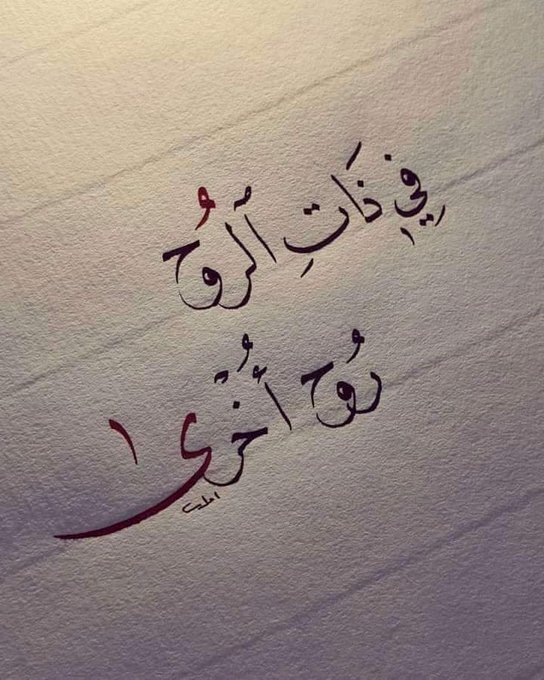 فِي ذَاتِ ٱلرُّوح
رُوح أُخْرىٰ